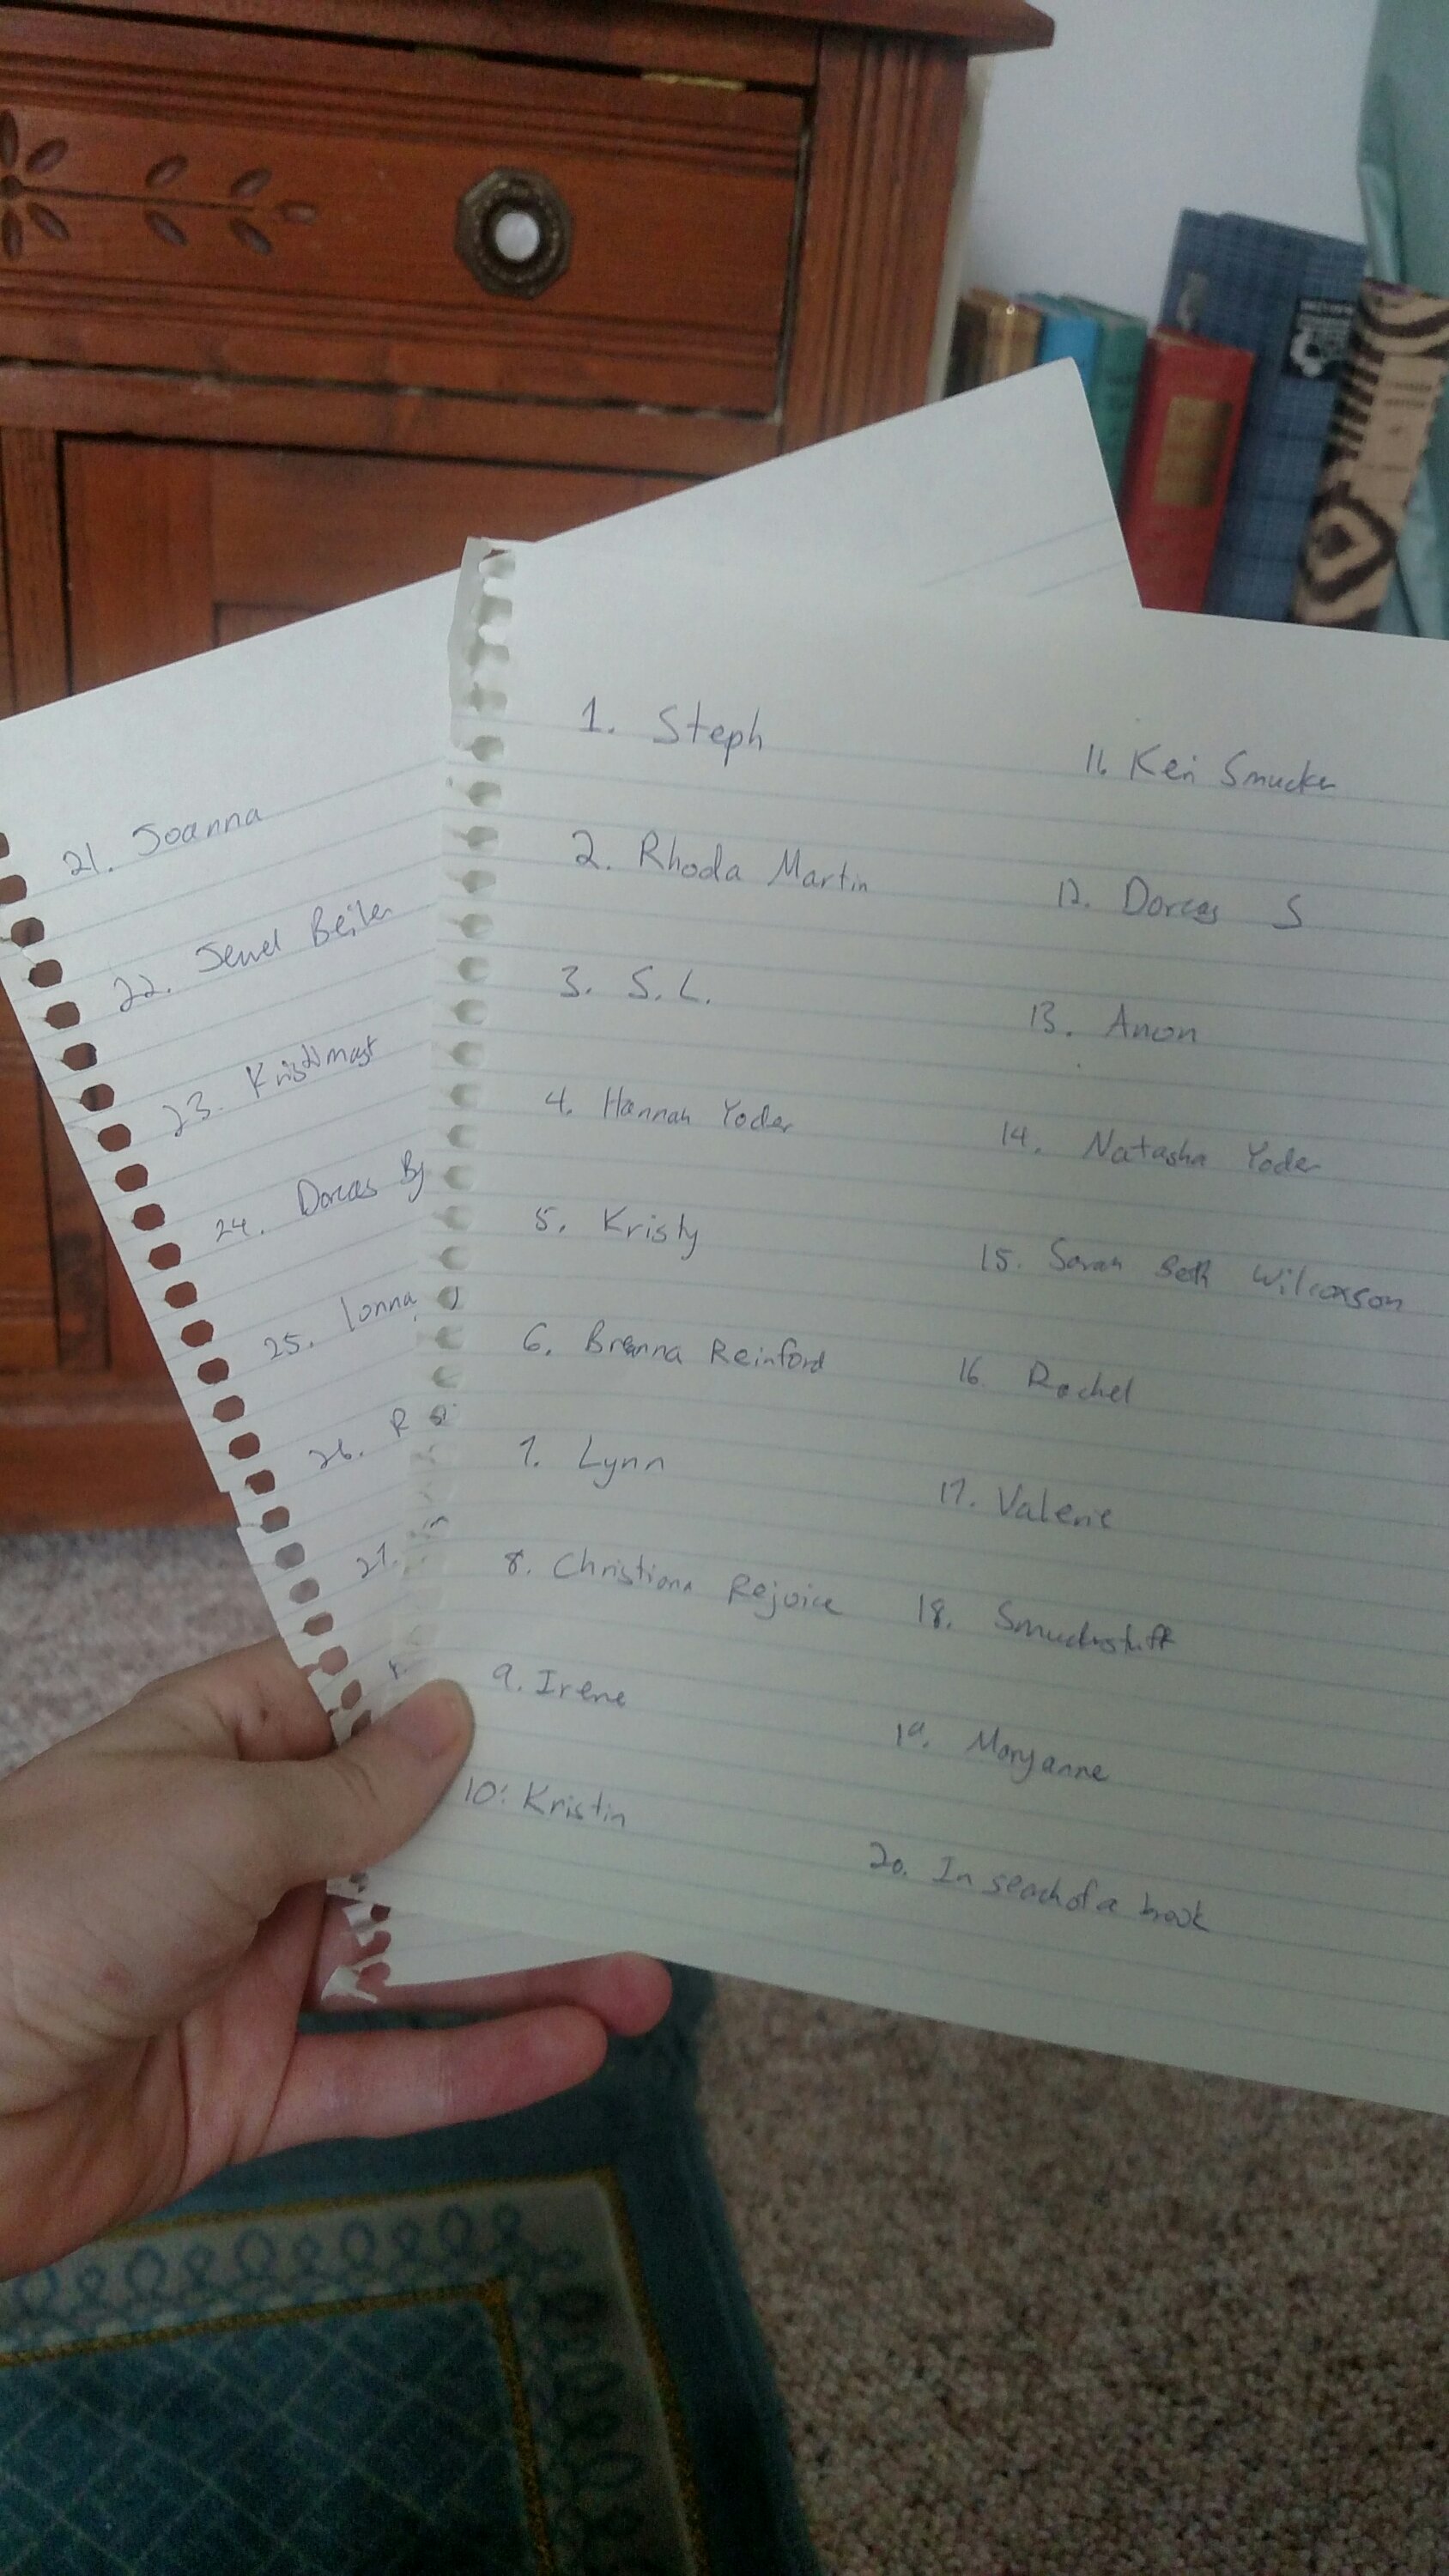 1. Steph
2. Rhoda Martin
3. S. L.
4. Hannah Yoder
5. Kristy
6. Brenna Reinford
7. Lynn
8. Christiana Rejoice
9. Irene
10. Kristin
11. Keri Smucker
12. Dorcas S
13. Anon
14. Natasha Yoder
15. Sarah Beth Wilcoxson
16. Rachel
17. Valerie
18. Smuckstuff
19. Maryanne
20. In seachofa book
21. Joanna
22. Jewel Beiler
23.
24. Dorcas By
25.
26. R
27.